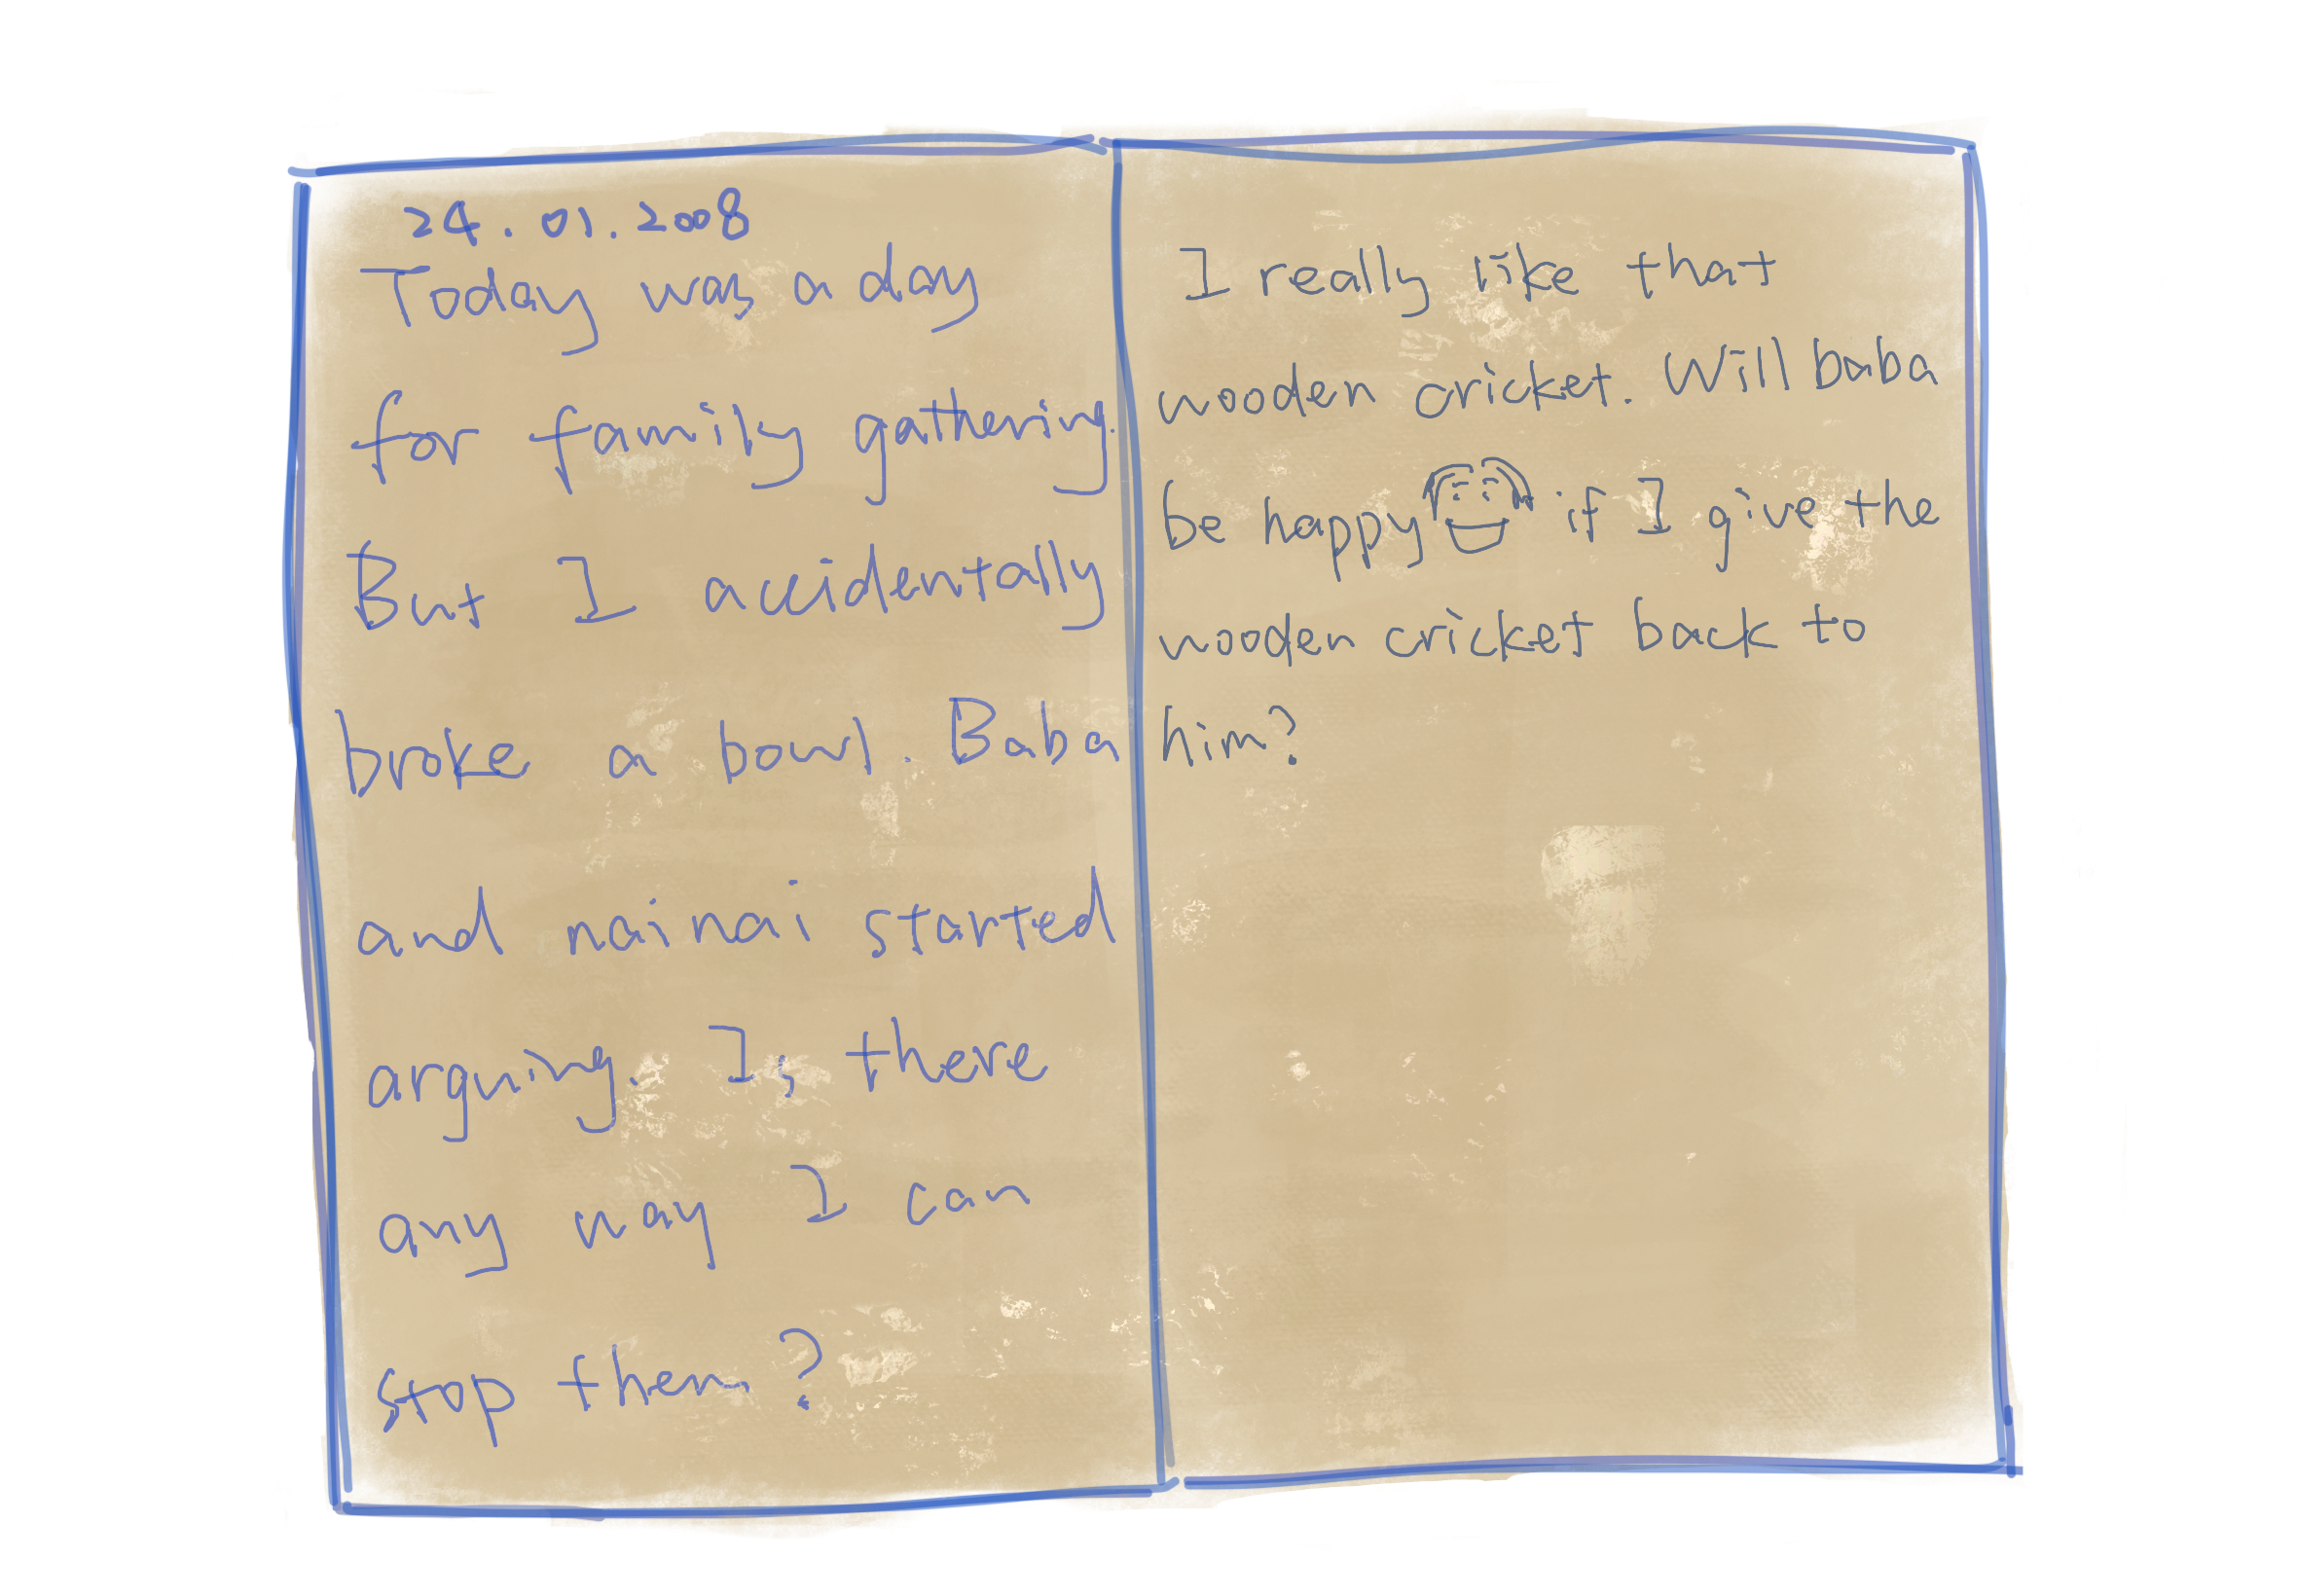 24.01.2008
Today was a day
for family gathering.
But I accidentally
broke a bowl. Baba
and nainai started
arguing. Is there
any way I can
stop them?
I really like that
wooden cricket. Will baba
be happy if I give the
wooden cricket back to
him?